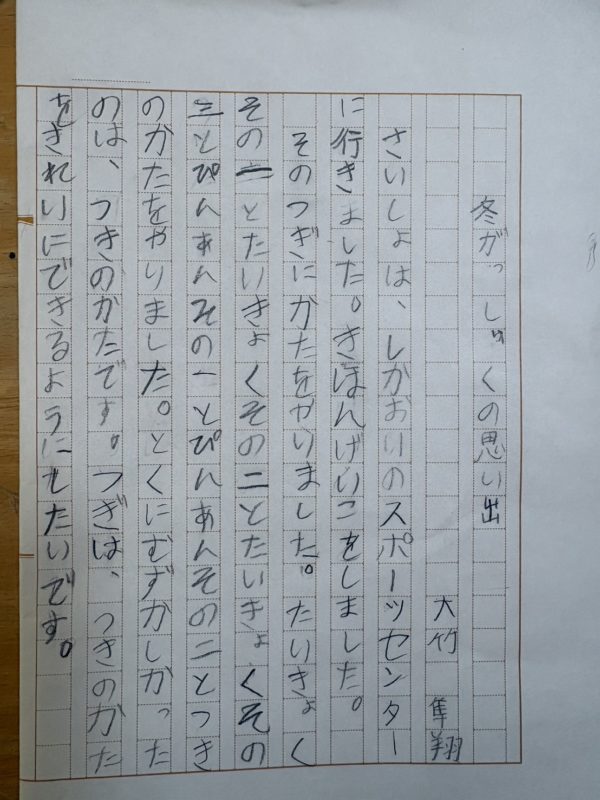 冬がっしゅくの思い出
大竹 隼翔
さいしょは、しかおいのスポーツセンター
に行きました。きほんげいこをしました。
そのつぎにかたをやりました。たいきょく
その一とたいきょくその二とたいきょくその
三とぴんあんその一とぴんあんその二とつき
のかたをやりました。とくにむずかしかった
のは、つきのかたです。つぎは、つきのかた
をきれいにできるようにしたいです。